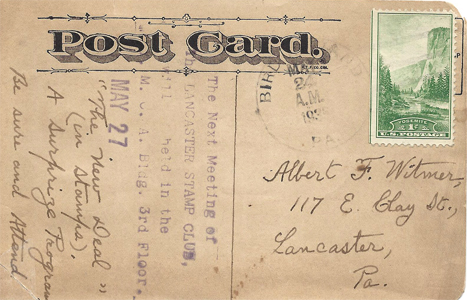 Post Card.
The Next Meeting of
the LANCASTER STAMP CLUB,
will held in the
M. C. A. Bldg. 3rd Floor.
MAY 27
"The New Deal"
(in Stamps).
A Surprize Program
Be sure and Attend
A.M.
PA.
YOSEMITE
1¢
U.S. POSTAGE
Albert F. Witmer,
117 E. Clay St.,
Lancaster,
Pa.